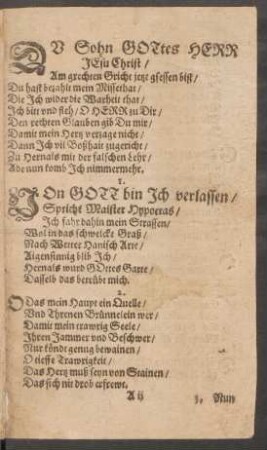 DV Sohn GOttes HERR
JEsu Christ /
Am grechten Gricht jetzt gsessen bist /
Du hast bezahlt mein Missethat /
Die Jch wider die Warheit that /
Jch bitt vnd fleh / O HERR zu Dir /
Den rechten Glauben gib Du mir /
Damit mein Hertz verzage nicht /
Dann Jch vil Boßhait zugericht /
Zu Hernals mit der falschen Lehr /
Ade nun komb Jch nimmermehr.
1.
VOn GOTT bin Jch verlassen /
Spricht Maister
Jch fahr dahin mein Strassen /
Wol in das Graß /
Nach Wetter Hanisch Art /
Aigensinnig blib Jch /
Hernals wurd GOttes Garte /
Dasselb das betrübt mich.
2.
O Das mein Haupt ein Quelle /
Vnd Threnen Brünnelein wer /
Damit mein trawrig Seele /
Jhrem Jammer vnd Beschwer /
Nur köndt genug bewainen /
O tieffe Trawrigkeit /
Das Hertz muß seyn von Stainen /
Das sich nit drob erfrewt.
A ij
3. Nun